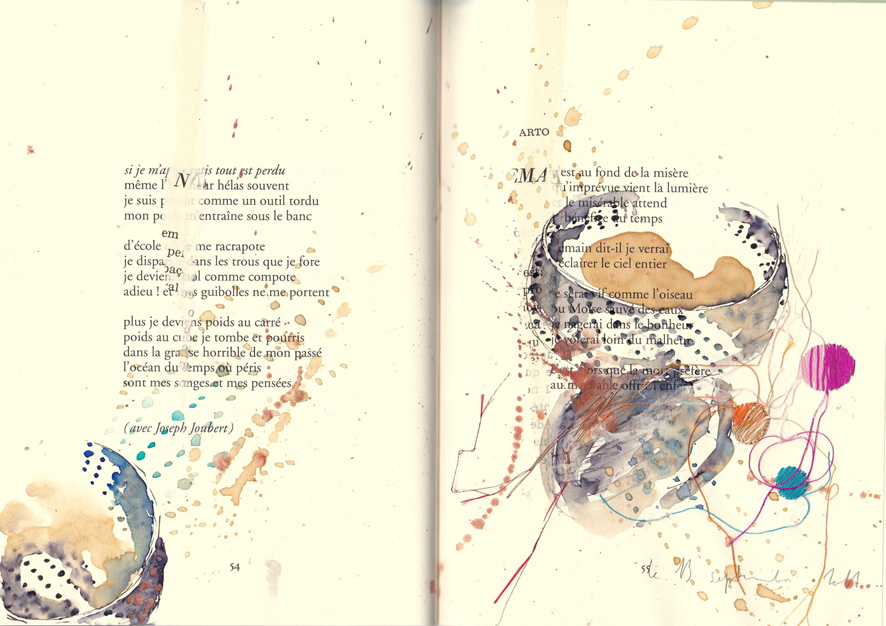 si je m'ap is tout est perdu
même l' ar hélas souvent
je suis comme un outil tordu
mon m'entraîne sous le banc
d'école me racrapote
je dispa dans les trous que je fore
je devien ol comme compote
adieu ! et guibolles ne me portent
plus je deviens poids au carré
poids au cube je tombe et pourris
dans la grasse horrible de mon passé
l'océan du temps où péris
sont mes songes et mes pensées
(avec Joseph Joubert)
54
ARTO
EMA est au fond de la misère
qu'imprévue vient là lumière
le misérable attend
bénéfice du temps
demain dit-il je verrai
éclairer le ciel entier
je serai vif comme l'oiseau
ou Moïse sauvé des eaux
je nagerai dans le bonheur
je volerai loin du malheur
lors que la mort préfère
au offrir l'enfer
55
le 13 septembre